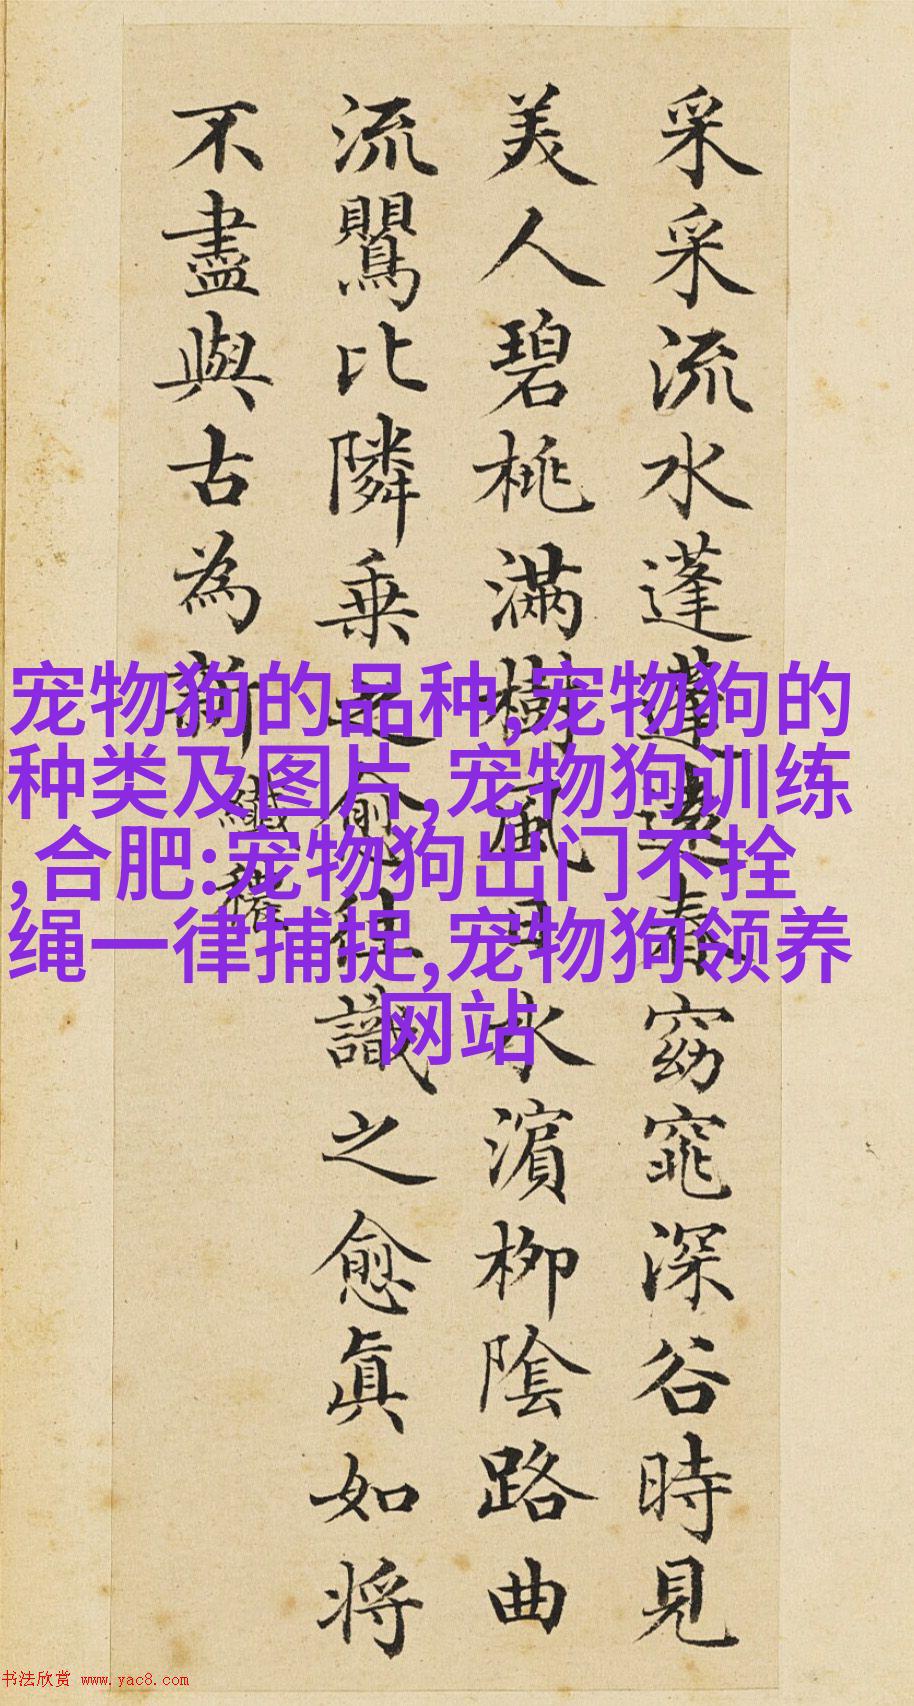 采采流水蓬蓬遠春窈窕深谷時見
美人碧桃滿樹風日水濱柳陰路曲
流鸎比隣乗之愈往識之愈眞如将
不盡與古為新
纖穠
宠物狗的品种,宠物狗的
种类及图片,宠物狗训练
,合肥:宠物狗出门不拴
绳一律捕捉,宠物狗领养
网站
书法欣赏 www.yac8.com